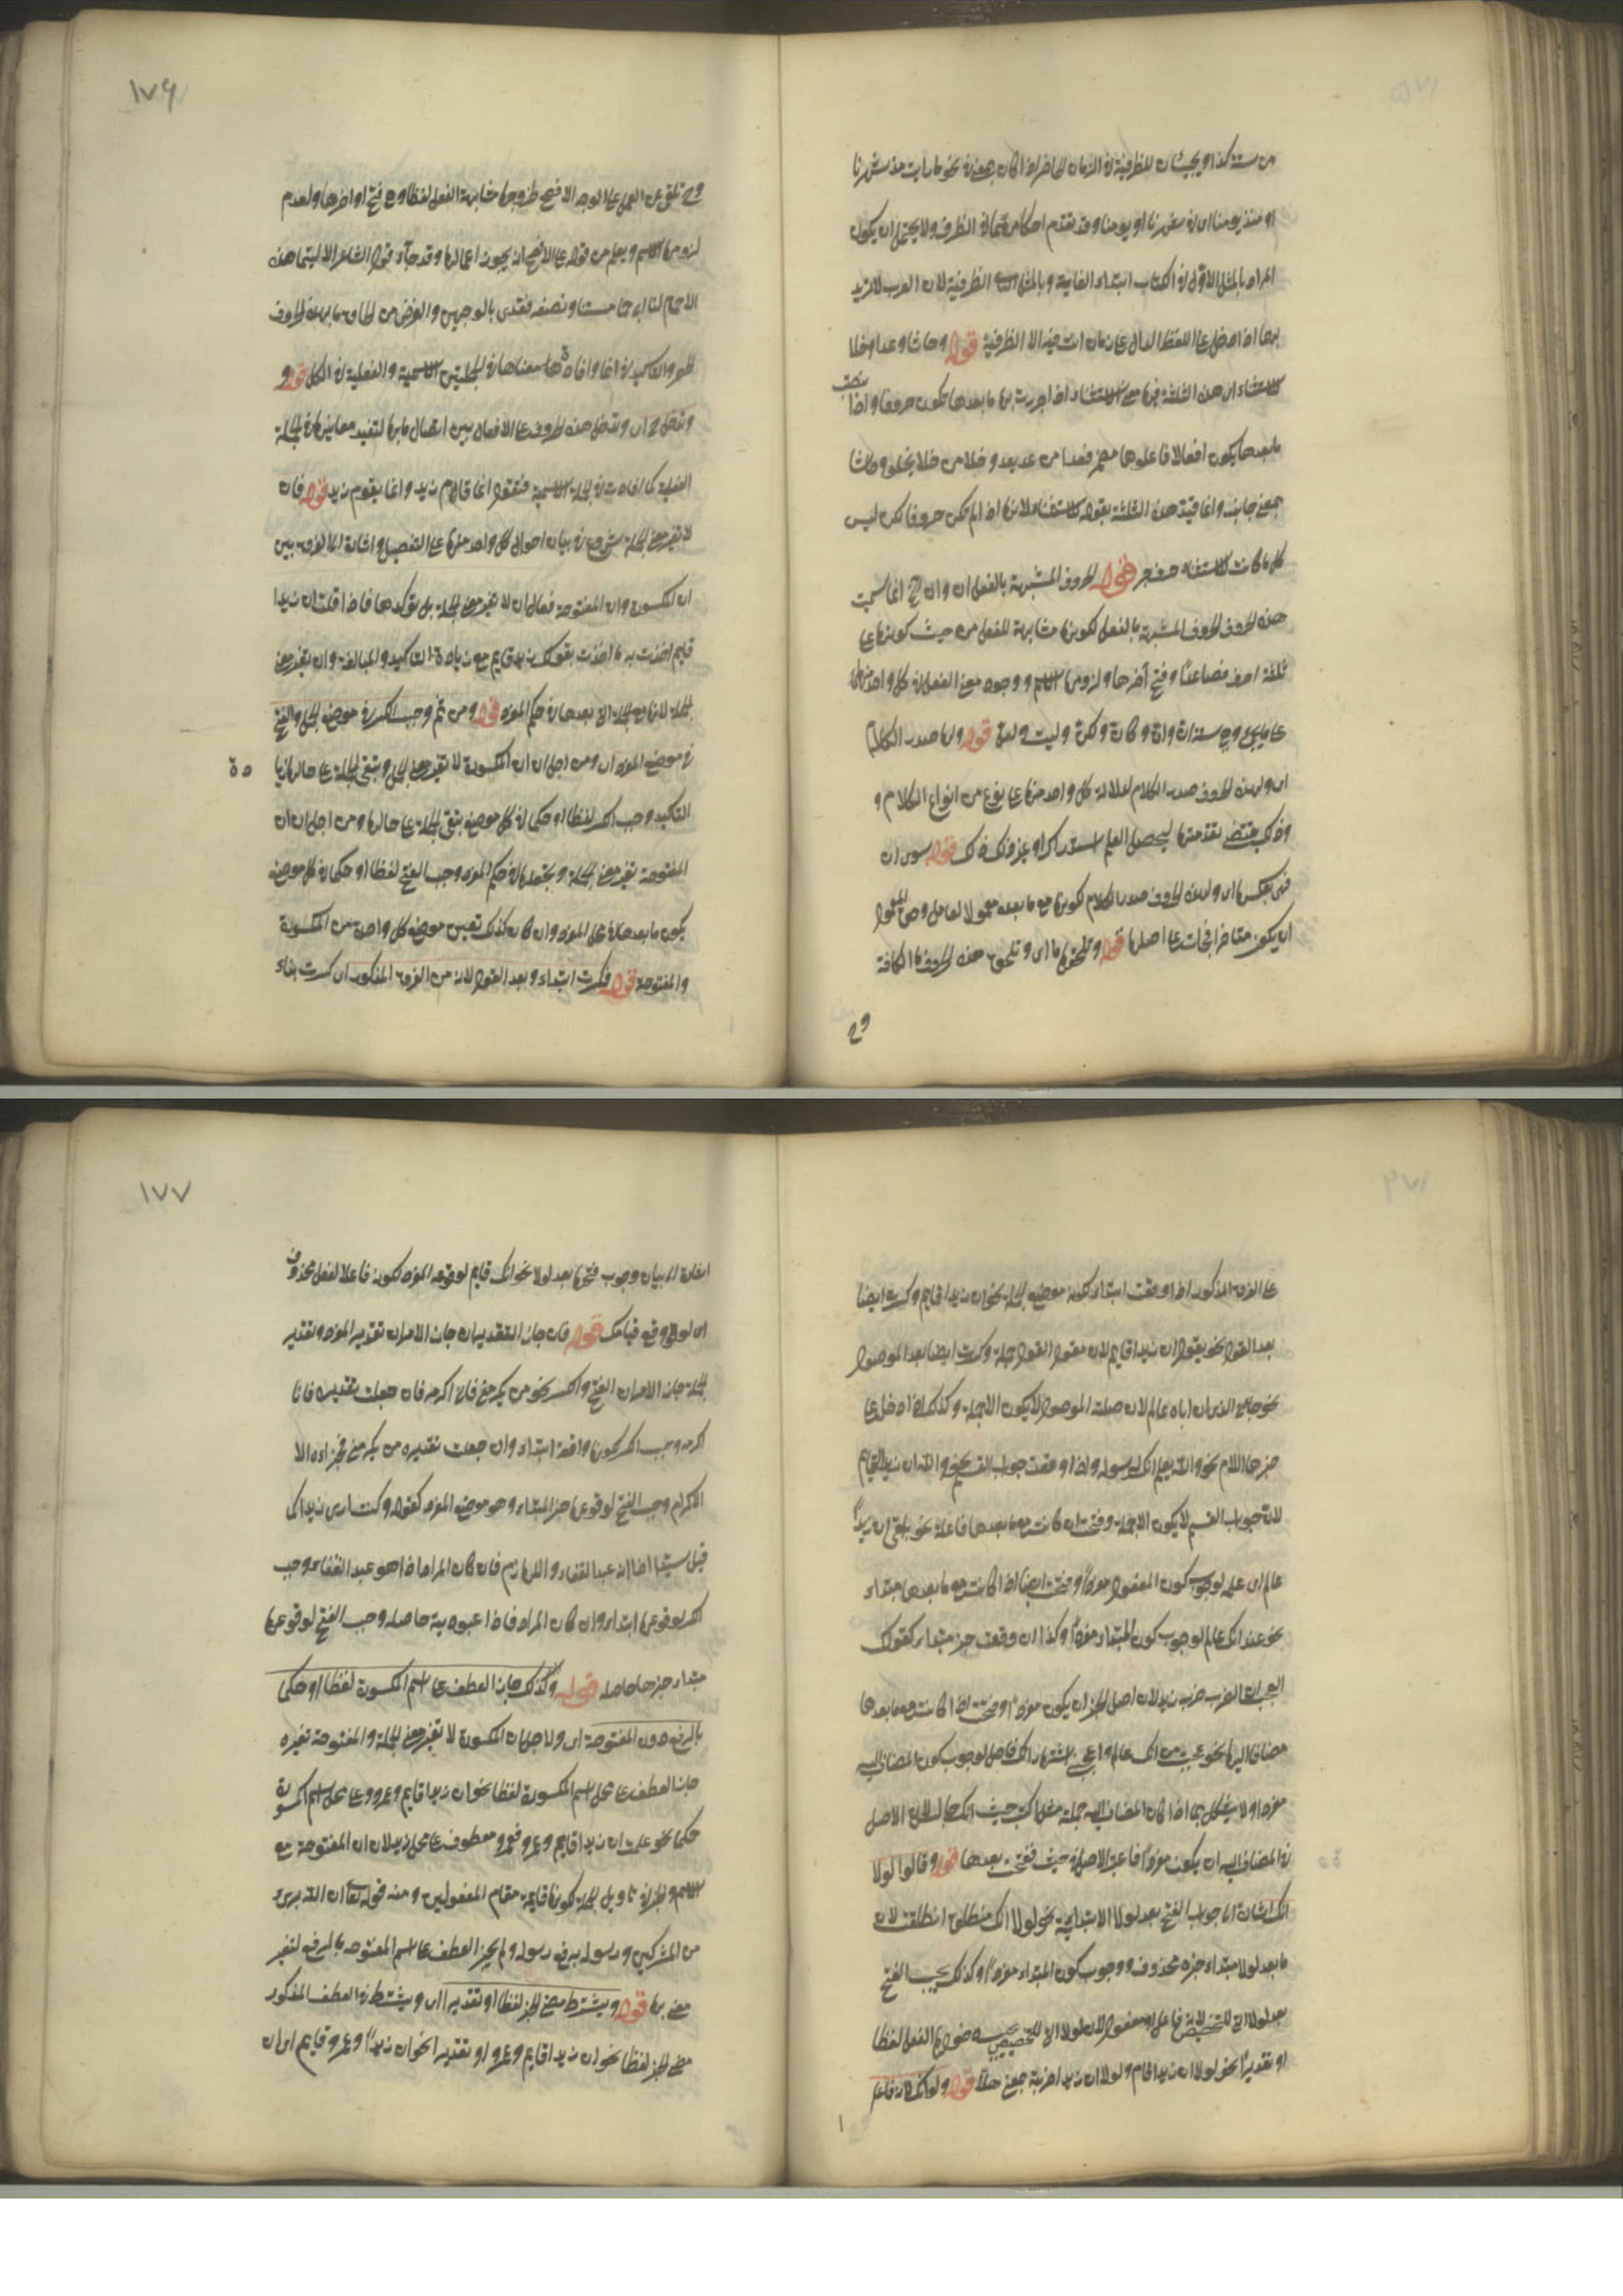 من سنة كذا ويجيئان للظرفية في الزمان الحاضر اذا كان بمعنى في نحو ما رايت مذ شهرنا
او منذ يومنا اي في شهرنا او يومنا وقد تقدم احكامهما في الظرف ولا يحتمل ان يكون
المراد بالمثل الاول في الكتاب ابتداء الغاية وبالمثل الظرفية لان العرب لا تريد
بهما اذا دخل على اللفظ الدال على زمان انت فيه الا الظرفية قوله وحاشا وعدا وخلا
للاستثناء اي هذه الثلثة فيها معنى الاستثناء اذا جررت بها ما بعدها تكون حروفا واذا نصبت
ما بعدها يكون افعالا فاعلوها مضمر فعدا من عدا يعدو وخلا من خلا يخلو وحاشا
بمعنى جانب وانما قيد هذه الثلثة بقوله للاستثناء لانها اذا لم تكن حروفا لكن ليس
كلما كانت للاستثناء حرف جر قوله الحروف المشبهة بالفعل ان وان الخ انما سميت
هذه الحروف الحروف المشبهة بالفعل لكونها مشابهة للفعل من حيث كونها على
ثلثة احرف فصاعدا وفتح آخرها ولزومها الاسم ووجود معنى الفعل في كل واحد منها
على ما يجيء وهي ستة ان وان وكان ولكن وليت ولعل قوله ولها صدر الكلام
اي ولهذه الحروف صدر الكلام لدلالة كل واحد منها على نوع من انواع الكلام و
وذلك يقتضي تقدمها ليحصل العلم استدراك او غير ذلك قوله سوى ان
فهي بعكسها اي ولهذه الحروف صدر الكلام لكونها مع ما بعده معمولا لعامل وحق المعمول
ان يكون متاخرا فجات على اصلها قوله وتلحقها ما اي وتلحق هذه الحروف ما الكافة
وح
١٧٦
وح تلغى عن العمل على الوجه الافصح لخروجها مشابهة الفعل لفظا وهو فتح اواخرها ولعدم
لزومها الاسم ويعلم من قوله على الافصح انه يجوز اعمالها وقد جاء في قول الشاعر الا ليتما هذا
الحمام لنا الى حمامتنا ونصفه فقد يروى بالوجهين والغرض من الحاق ما بهذه الحروف
الحصر والتاكيد في انما وافادتها معناها في الجملتين الاسمية والفعلية في الكل قوله و
وتدخل ح اي وتدخل هذه الحروف على الافعال بين اتصال ما بها لتفيد معانيها في الجملة
الفعلية كما افادت في الجملة الاسمية فتقول انما قام زيد وانما يقوم زيد قوله فان
لا تغير معنى الجملة شروع في بيان احوال كل واحد منها على التفصيل واشارة الى الفرق بين
ان المكسورة وان المفتوحة فقال ان لا تغير معنى الجملة بل تؤكدها فاذا قلت ان زيدا
قايم افدت به ما افدت بقولك زيد قايم مع زيادة التاكيد والمبالغة وان تغير معنى
الجملة لانها مع الجملة التي بعدها في حكم المفرد قوله ومن ثم وجب الكسر في موضع الجمل والفتح
في موضع المفرد اي ومن اجل ان ان المكسورة لا تغير معنى الجمل وتبقى الجملة على حالها زيادة
التاكيد وجب الكسر لفظا او حكما في كل موضع تبقى الجملة على حالها ومن اجل ان ان
المفتوحة تغير معنى الجملة وتجعلها في حكم المفرد وجب الفتح لفظا او حكما في كل موضع
يكون ما بعدها في محل المفرد وان كان كذلك تعين موضع كل واحدة من المكسورة
والمفتوحة قوله فكسرت ابتداء وبعد القول لان من الفرق المذكور اي كسرت بناء
على الفرق المذكور اذا وقعت ابتداء لكونه موضع الجملة نحو ان زيدا قايم وكسرت ايضا
بعد القول نحو يقول ان زيدا قايم لان مقول القول جملة وكسرت ايضا بعد الموصول
نحو جاءني الذي ان اباه عالم لان صلة الموصول لا يكون الا جملة وكذلك اذا دخل على
خبرها اللام نحو والله يعلم انك لرسوله واذا وقعت جواب القسم نحو والله ان زيدا لقايم
لان جواب القسم لا يكون الا جملة وفتحت ان كانت مع ما بعدها فاعلة نحو بلغني ان زيدا
عالم اي علمه لوجوب كون المفعول مفردا وفتحت ايضا اذا كانت مع ما بعدها مبتداء
نحو عندي انك عالم لوجوب كون المبتداء مفردا وكذا ان وقعت خبر مبتداء كقولك
العجب ان الضرب ضرب زيد لان اصل الخبر ان يكون مفردا وفتحت اذا كانت مع ما بعدها
مضافا اليها نحو عجبت من انك عالم واعجبني اشتهار انك فاضل لوجوب كون المضاف اليه
مفردا ولا يشكل بما اذا كان المضاف اليه جملة مثل حيث انك جالس لان الاصل
في المضاف اليه ان يكون مفردا فاعتبر الاصل في حيث ففتحت بعدها قوله وقالوا لولا
انك اشارة الى جواب الفتح بعد لولا الابتدائية نحو لولا انك منطلق انطلقت لان
ما بعد لولا مبتداء خبره محذوف ووجوب كون المبتداء مفردا وكذلك يجب الفتح
بعد لولا التي للتحضيض لانه فاعل او مفعول لان لولا التي للتحضيض يجب دخولها الفعل لفظا
او تقديرا نحو لولا ان زيدا قام ولولا ان زيدا ضربته بمعنى هلا قوله ولو انك لانه فاعل
١٧٧
اشارة الى بيان وجوب فتحها بعد لو لا نحو انك قايم لوقوعه المفرد لكونه فاعلا لفعل محذوف
اي لو وقع قيامك قوله فان جاز التقديران جاز الامران تقدير المفرد وتقدير
الجملة جاز الامران الفتح والكسر نحو من يكرمني فاني اكرمه فان جعلت تقديره فانا
اكرمه وجب الكسر لكونها واقعة ابتداء وان جعلت تقديره من يكرمني فجزاءه الا
الاكرام وجب الفتح لوقوعها خبر المبتداء وهو موضع المفرد كقوله وكنت ارى زيدا كما
قيل سيدا اذا انه عبد القفاء واللهازم فان كان المراد اذا هو عبد القفاء وجب
الكسر لوقوعها ابتداء وان كان المراد فاذا عبوديه حاصلة وجب الفتح لوقوعها
مبتداء خبرها حاصله قوله ولذلك جاز العطف على اسم المكسورة لفظا او حكما
بالرفع دون المفتوحة اي ولاجل ان المكسورة لا تغير معنى الجملة والمفتوحة تغيره
جاز العطف على محل اسم المكسورة لفظا نحو ان زيدا قايم وعمرو وعلى محل اسم المكسورة
حكما نحو علمت ان زيدا قايم وعمرو فعمرو معطوف على محل زيد لان ان المفتوحة مع
الاسم والخبر في تاويل الجملة لكونها قايمة مقام المفعولين ومنه قوله تعالى ان الله بريء
من المشركين ورسوله برفع رسوله ولم يجز العطف على اسم المفتوحة بالرفع لتغير
معنى بها قوله ويشترط مضي الخبر لفظا او تقديرا اي ويشترط في العطف المذكور
مضي الخبر لفظا نحو ان زيدا قايم وعمرو او تقديرا نحو ان زيدا وعمرو قايم اي ان